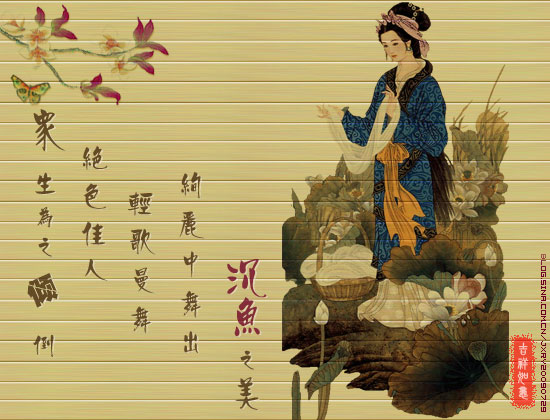 衆生為之倒
絕色佳人
輕歌曼舞
絢麗中舞出
沉魚之美
吉祥如意
BLOG.SINA.COM.CN/JXRY2009072